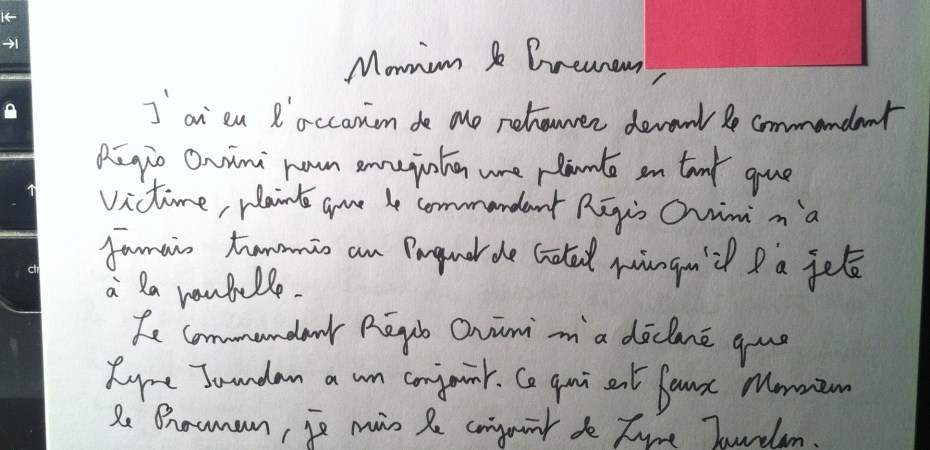 Monsieur le Procureur,
J'ai eu l'occasion de me retrouver devant le commandant
Régis Orsini pour enregistrer une plainte en tant que
Victime, plainte que le commandant Régis Orsini n'a
jamais transmis au Parquet de Créteil puisqu'il l'a jeté
à la poubelle.
Le Commandant Régis Orsini m'a déclaré que
Lyne Jourdan a un conjoint. Ce qui est faux Monsieur
le Procureur, je suis le conjoint de Lyne Jourdan.
ctr